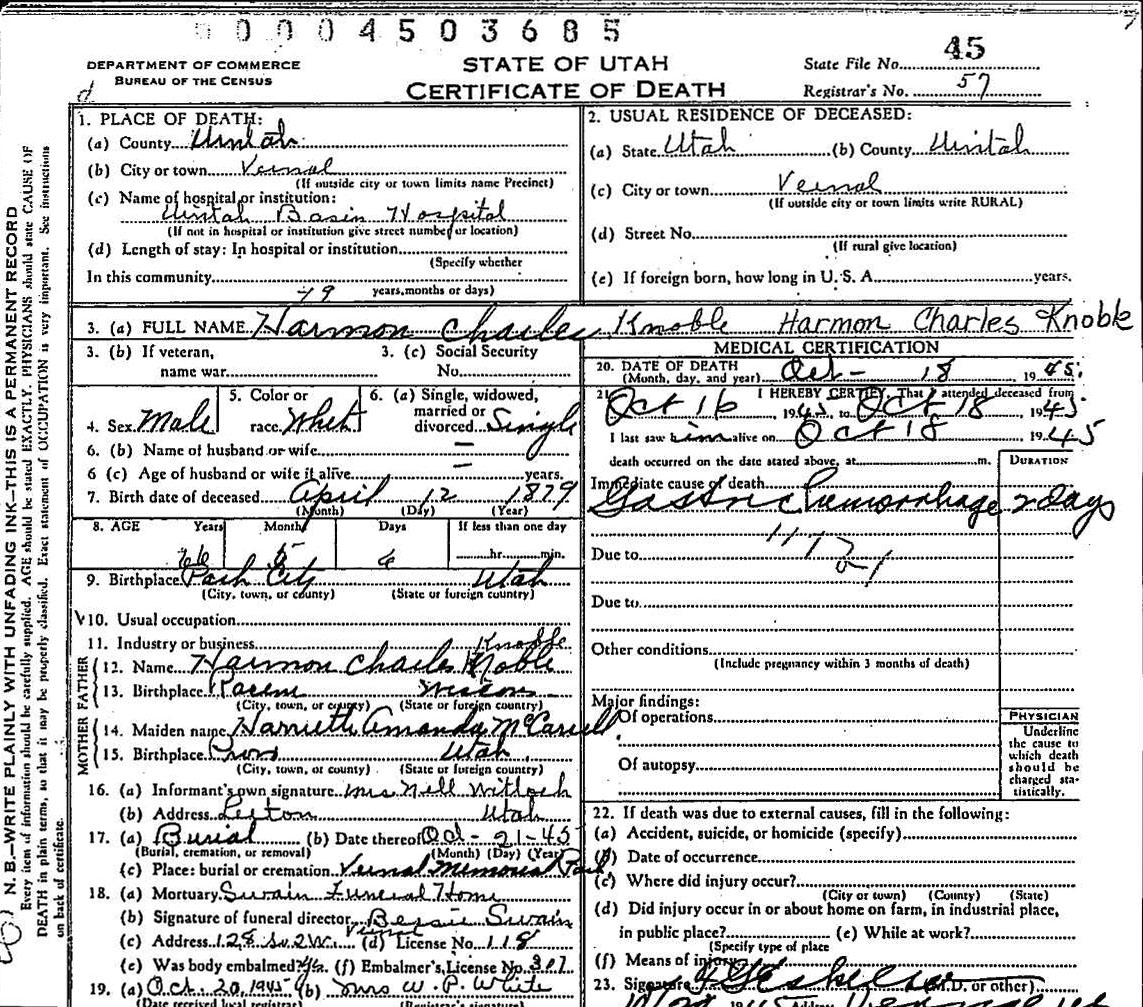 0004503685
45
DEPARTMENT OF COMMERCE
BUREAU OF THE CENSUS
STATE OF UTAH
CERTIFICATE OF DEATH
State File No.
Registrar's No. 57
d
N. B.—WRITE PLAINLY WITH UNFADING INK—THIS IS A PERMANENT RECORD
Every item of information should be carefully supplied. AGE should be stated EXACTLY. PHYSICIANS should state CAUSE OF
DEATH in plain terms, so that it may be properly classified. Exact statement of OCCUPATION is very important. See instructions
on back of certificate.
1. PLACE OF DEATH:
(a) County Uintah
(b) City or town Vernal
(If outside city or town limits name Precinct)
(c) Name of hospital or institution:
Uintah Basin Hospital
(If not in hospital or institution give street number or location)
(d) Length of stay: In hospital or institution
(Specify whether
In this community
years, months or days)
2. USUAL RESIDENCE OF DECEASED:
(a) State Utah (b) County Uintah
(c) City or town Vernal
(If outside city or town limits write RURAL)
(d) Street No.
(If rural give location)
(e) If foreign born, how long in U. S. A. years.
3. (a) FULL NAME Harmon Charles Knoble Harmon Charles Knoble
3. (b) If veteran,
name war
3. (c) Social Security
No.
4. Sex Male
5. Color or
race Whet
6. (a) Single, widowed,
married or
divorced Single
6. (b) Name of husband or wife —
6 (c) Age of husband or wife if alive — years.
7. Birth date of deceased April 12 1879
(Month) (Day) (Year)
8. AGE Years Months Days If less than one day
66 6 6 hr. min.
9. Birthplace Park City Utah
(City, town, or county) (State or foreign country)
V10. Usual occupation
11. Industry or business
Knoble
FATHER
12. Name Harmon Charles Knoble
13. Birthplace
(City, town, or county) (State or foreign country)
MOTHER
14. Maiden name Harriett Amanda
15. Birthplace Provo Utah
(City, town, or county) (State or foreign country)
16. (a) Informant's own signature Mrs Nell
(b) Address Utah
17. (a) Burial (b) Date thereof Oct - 21 - 45
(Burial, cremation, or removal) (Month) (Day) (Year)
(c) Place: burial or cremation Vernal Memorial Park
18. (a) Mortuary Swain Funeral Home
(b) Signature of funeral director Bessie Swain
Vernal
(c) Address 128 So. 2 W. (d) License No. 118
(e) Was body embalmed? (f) Embalmer's License No. 307
19. (a) Oct. 20, 1945 (b) Mrs W. P. White
(Date received local registrar) (Registrar's signature)
MEDICAL CERTIFICATION
20. DATE OF DEATH
(Month, day, and year) Oct - 18 1945.
21. I HEREBY CERTIFY, That I attended deceased from
Oct 16 1945 to Oct 18, 1945
I last saw him alive on Oct 18, 1945
death occurred on the date stated above, at m.
DURATION
Immediate cause of death
Gastric hemorrhage 2 days
Due to
Due to
Other conditions
(Include pregnancy within 3 months of death)
Major findings:
Of operations
Of autopsy
PHYSICIAN
Underline
the cause to
which death
should be
charged sta-
tistically.
22. If death was due to external causes, fill in the following:
(a) Accident, suicide, or homicide (specify)
(b) Date of occurrence
(c) Where did injury occur?
(City or town) (County) (State)
(d) Did injury occur in or about home on farm, in industrial place,
in public place? (e) While at work?
(Specify type of place
(f) Means of injury
23. Signature (M.D. or other)